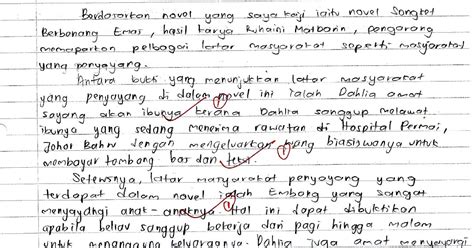 Berdasarkan novel yang saya kaji iaitu novel Songket
Berbenang Emas, hasil karya Khairi Matbarin, pengarang
memaparkan pelbagai latar masyarakat seperti masyarakat
yang penyayang.
Antara bukti yang menunjukkan latar masyarakat
yang penyayang di dalam novel ini ialah Dahlia amat
sayang akan ibunya kerana Dahlia sanggup melawat
ibunya yang sedang menerima rawatan di Hospital Permai,
Johor Bahru dengan mengeluarkan wang biasiswanya untuk
membayar tambang bas dan
Seterusnya, latar masyarakat penyayang yang
terdapat dalam novel ialah Embong yang sangat
menyayangi anak-anaknya. Hal ini dapat dibuktikan
apabila beliau sanggup bekerja dari pagi hingga malam
untuk menanggung keluarganya. Dahlia juga amat menyayangi